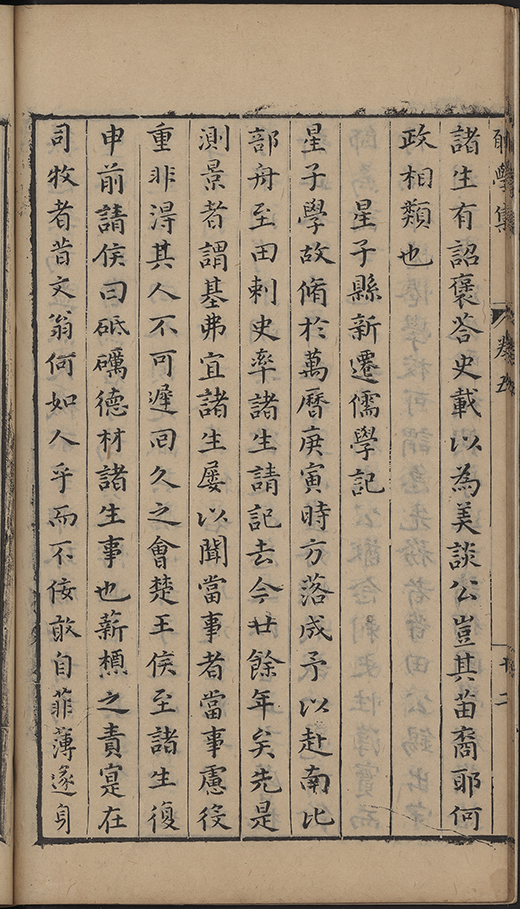 學集 卷五 二
諸生有詔褒荅史載以為美談公豈其苗裔耶何
政相類也
星子縣新遷儒學記
星子學故脩於萬曆庚寅時方落成予以赴南比
部舟至田剌史率諸生請記去今廿餘年矣先是
測景者謂基弗宜諸生屡以聞當事者當事慮役
重非淂其人不可遲回久之會楚王侯至諸生復
申前請侯曰砥礪德材諸生事也薪槱之責寔在
司牧者昔文翁何如人乎而不佞敢自菲薄遂身